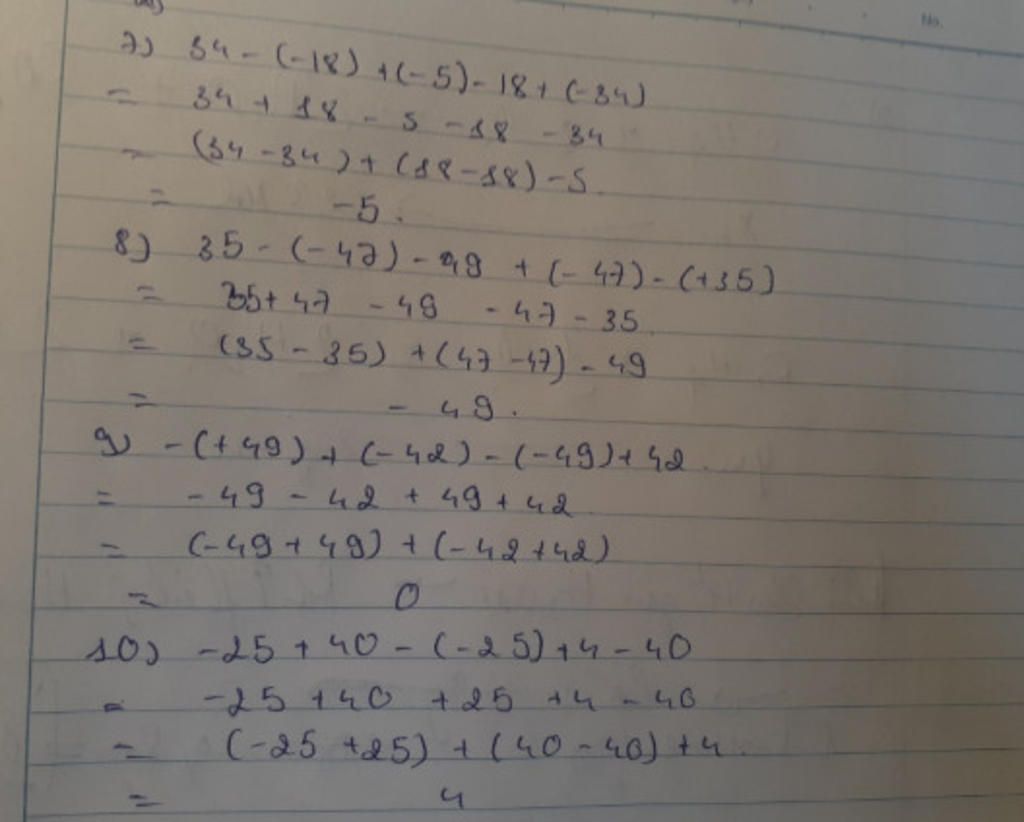 No.
7) 34 - (-18) + (-5) - 18 + (-34)
= 34 + 18 - 5 - 18 - 34
= (34 - 34) + (18 - 18) - 5.
= -5.
8) 35 - (-47) - 49 + (-47) - (+35)
= 35 + 47 - 49 - 47 - 35
= (35 - 35) + (47 - 47) - 49
= - 49.
9) -(+49) + (-42) - (-49) + 42
= - 49 - 42 + 49 + 42
= (-49 + 49) + (-42 + 42)
= 0
10) -25 + 40 - (-25) + 4 - 40
= -25 + 40 + 25 + 4 - 40
= (-25 + 25) + (40 - 40) + 4
= 4